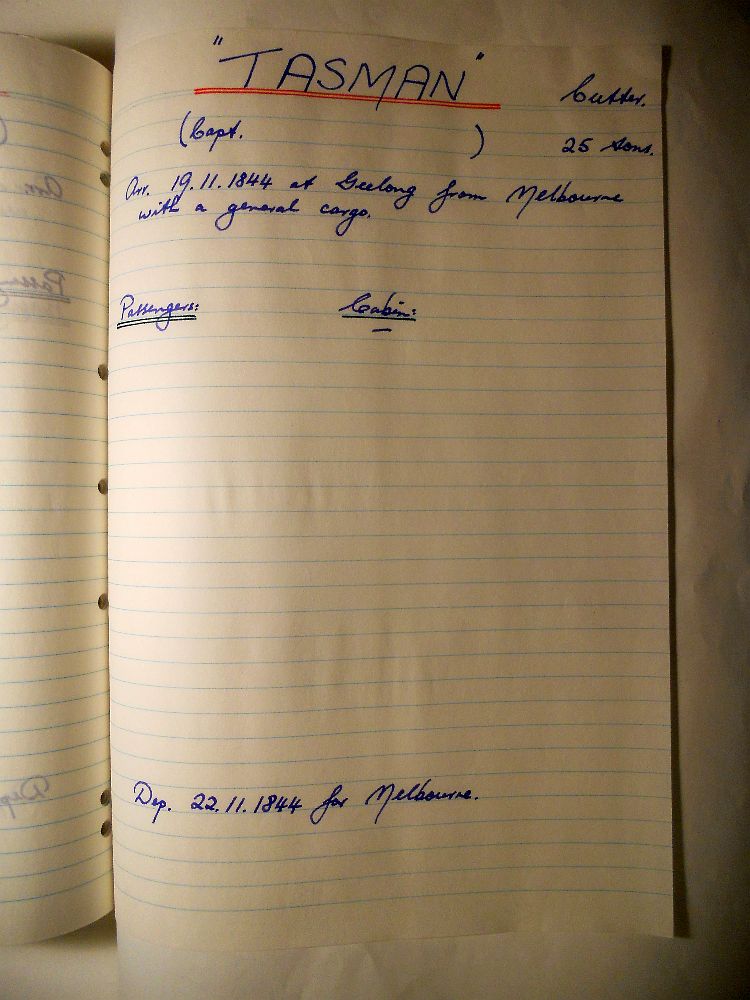 "TASMAN"
Cutter.
(Capt. )
25 tons.
Arr. 19.11.1844 at Geelong from Melbourne
with a general cargo.
Passengers: Cabin:
Dep. 22.11.1844 for Melbourne.